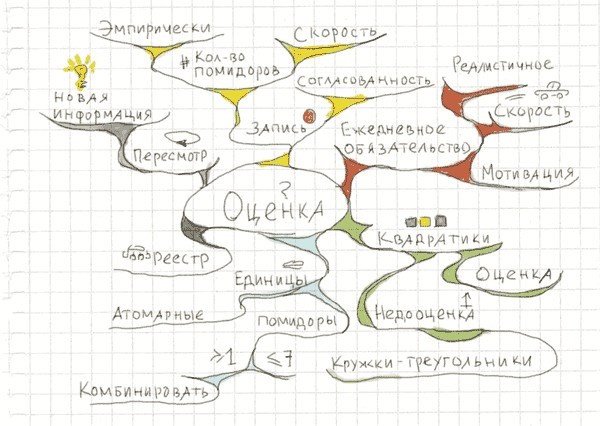 Эмпирически
Скорость
# Кол-во
помидоров
Согласованность
Реалистичное
Новая
информация
Запись
Ежедневное
обязательство
Скорость
Пересмотр
Мотивация
?
Оценка
Квадратики
Реестр
Единицы
Оценка
Атомарные
Помидоры
Недооценка
≥1 ≤7
Кружки-треугольники
Комбинировать